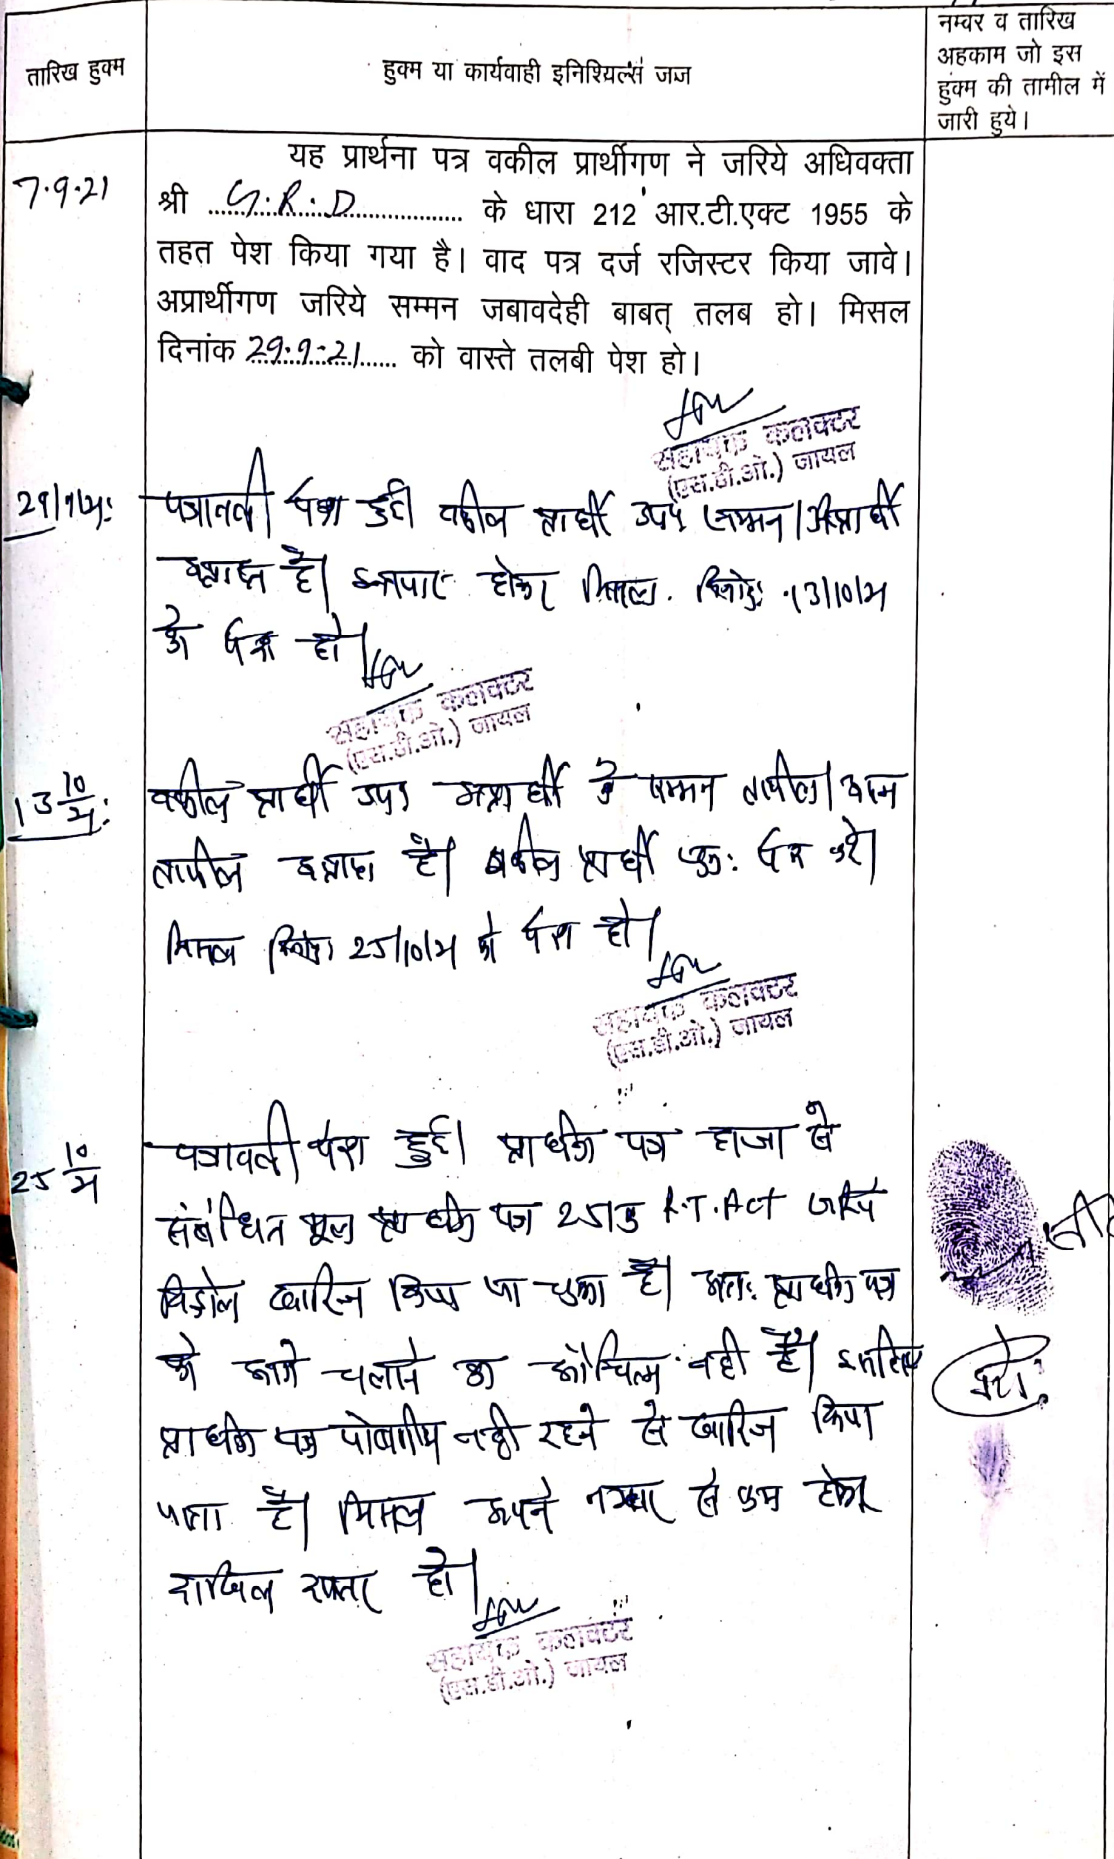 नम्वर व तारिख
अहकाम जो इस
हुक्म की तामील में
जारी हुये।
तारिख हुक्म
हुक्म या कार्यवाही इनिश्यिल्स जज
7.9.21
यह प्रार्थना पत्र वकील प्रार्थीगण ने जरिये अधिवक्ता
श्री G.R.D के धारा 212 आर.टी.एक्ट 1955 के
तहत पेश किया गया है। वाद पत्र दर्ज रजिस्टर किया जावे।
अप्रार्थीगण जरिये सम्मन जबावदेही बाबत् तलब हो। मिसल
दिनांक 29.9.21 को वास्ते तलबी पेश हो।
सहायक कलक्टर
(एस.डी.ओ.) जायल
29/9/21:
पत्रावली पेश हुई। वकील प्रार्थी उप। सम्मन अप्रार्थी
है। इन्तजार होकर मिसल 13/10/21
को पेश हो।
सहायक कलक्टर
(एस.डी.ओ.) जायल
13 10/21:
वकील प्रार्थी उप। अप्रार्थी के सम्मन तामील। अदम
तामील है। वकील प्रार्थी पुनः पेश करे।
मिसल दिनांक 25/10/21 को पेश हो।
सहायक कलक्टर
(एस.डी.ओ.) जायल
25 10/21
पत्रावली पेश हुई। प्रार्थना पत्र हाजा से
संबंधित मूल प्रार्थना पत्र 251 R.T.Act जरिये
विड्रोल खारिज किया जा चुका है। अतः प्रार्थना पत्र
को आगे चलाने का औचित्य नही है। इसलिए
प्रार्थना पत्र पोषणीय नही रहने से खारिज किया
जाता है। मिसल अपने नम्बर से कम होकर
दाखिल दफ्तर हो।
सहायक कलक्टर
(एस.डी.ओ.) जायल